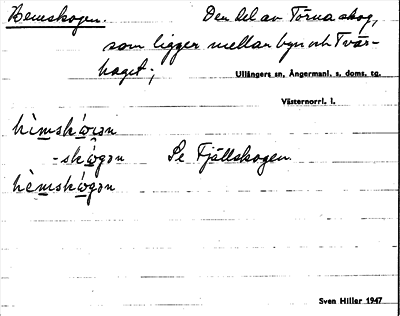 Hemskogen. Den del av Törna skog,
som ligger mellan byn och Tvär-
haget;
Ullångers sn, Ångermanl. s. doms. tg.
Västernorrl. l.
hèmsków̯ən
-skógən Se Fjällskogen.
hèmskógən
Sven Hiller 1947